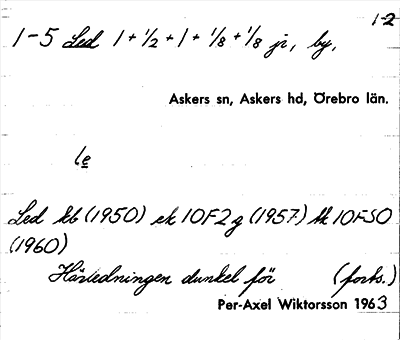 1-2
1-5 Led 1 + 1/2 + 1 + 1/8 + 1/8 jr, by,
Askers sn, Askers hd, Örebro län.
le
Led kb (1950) ek 10F2g (1957) tk 10FSO
(1960)
Härledningen dunkel för (forts.)
Per-Axel Wiktorsson 1963